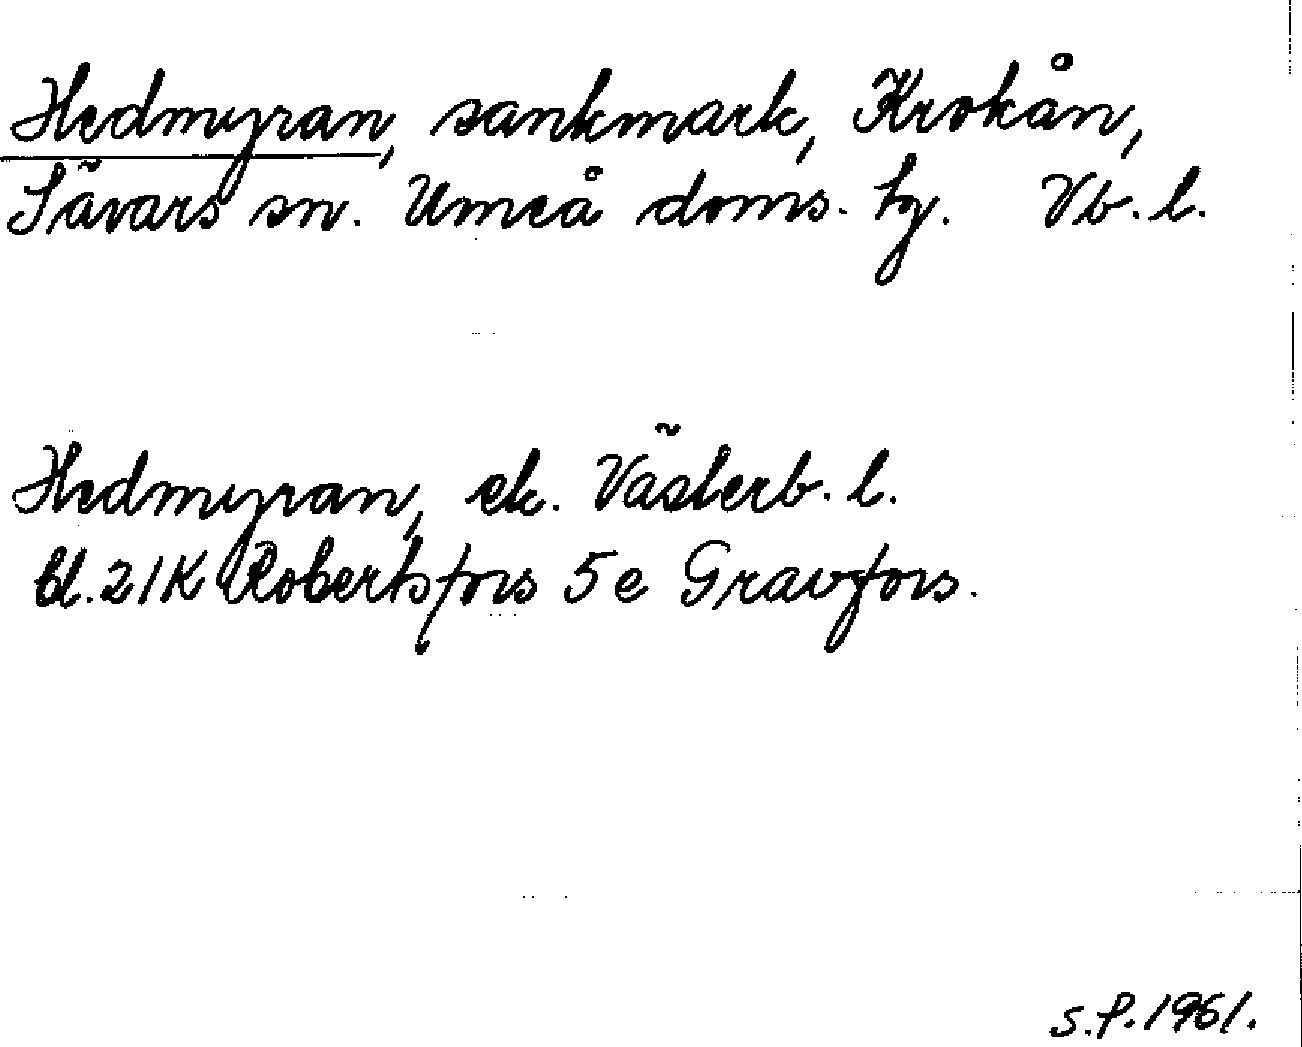 Hedmyran, sankmark, Krokån,
Sävars sn. Umeå doms. hg. Vb. l.
Hedmyran, ek. Västerb. l.
bl. 21K Robertsfors 5e Gravfors.
S.P. 1961.